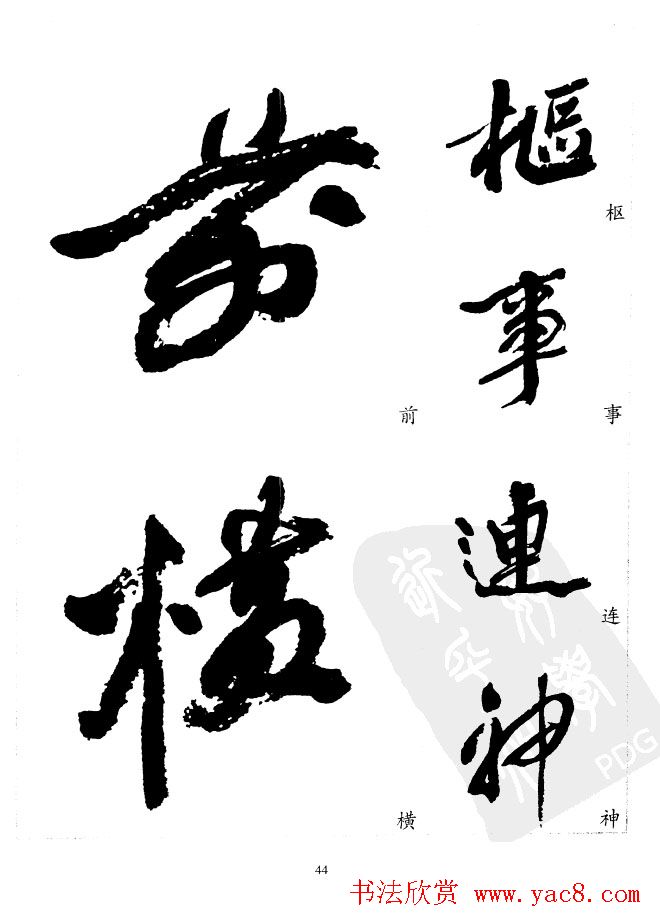 樞
枢
事
事
連
连
神
神
前
前
橫
横
PDG
44
书法欣赏 www.yac8.com